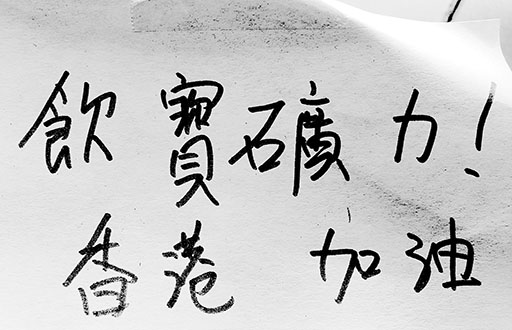 飲寶礦力！
香港 加油